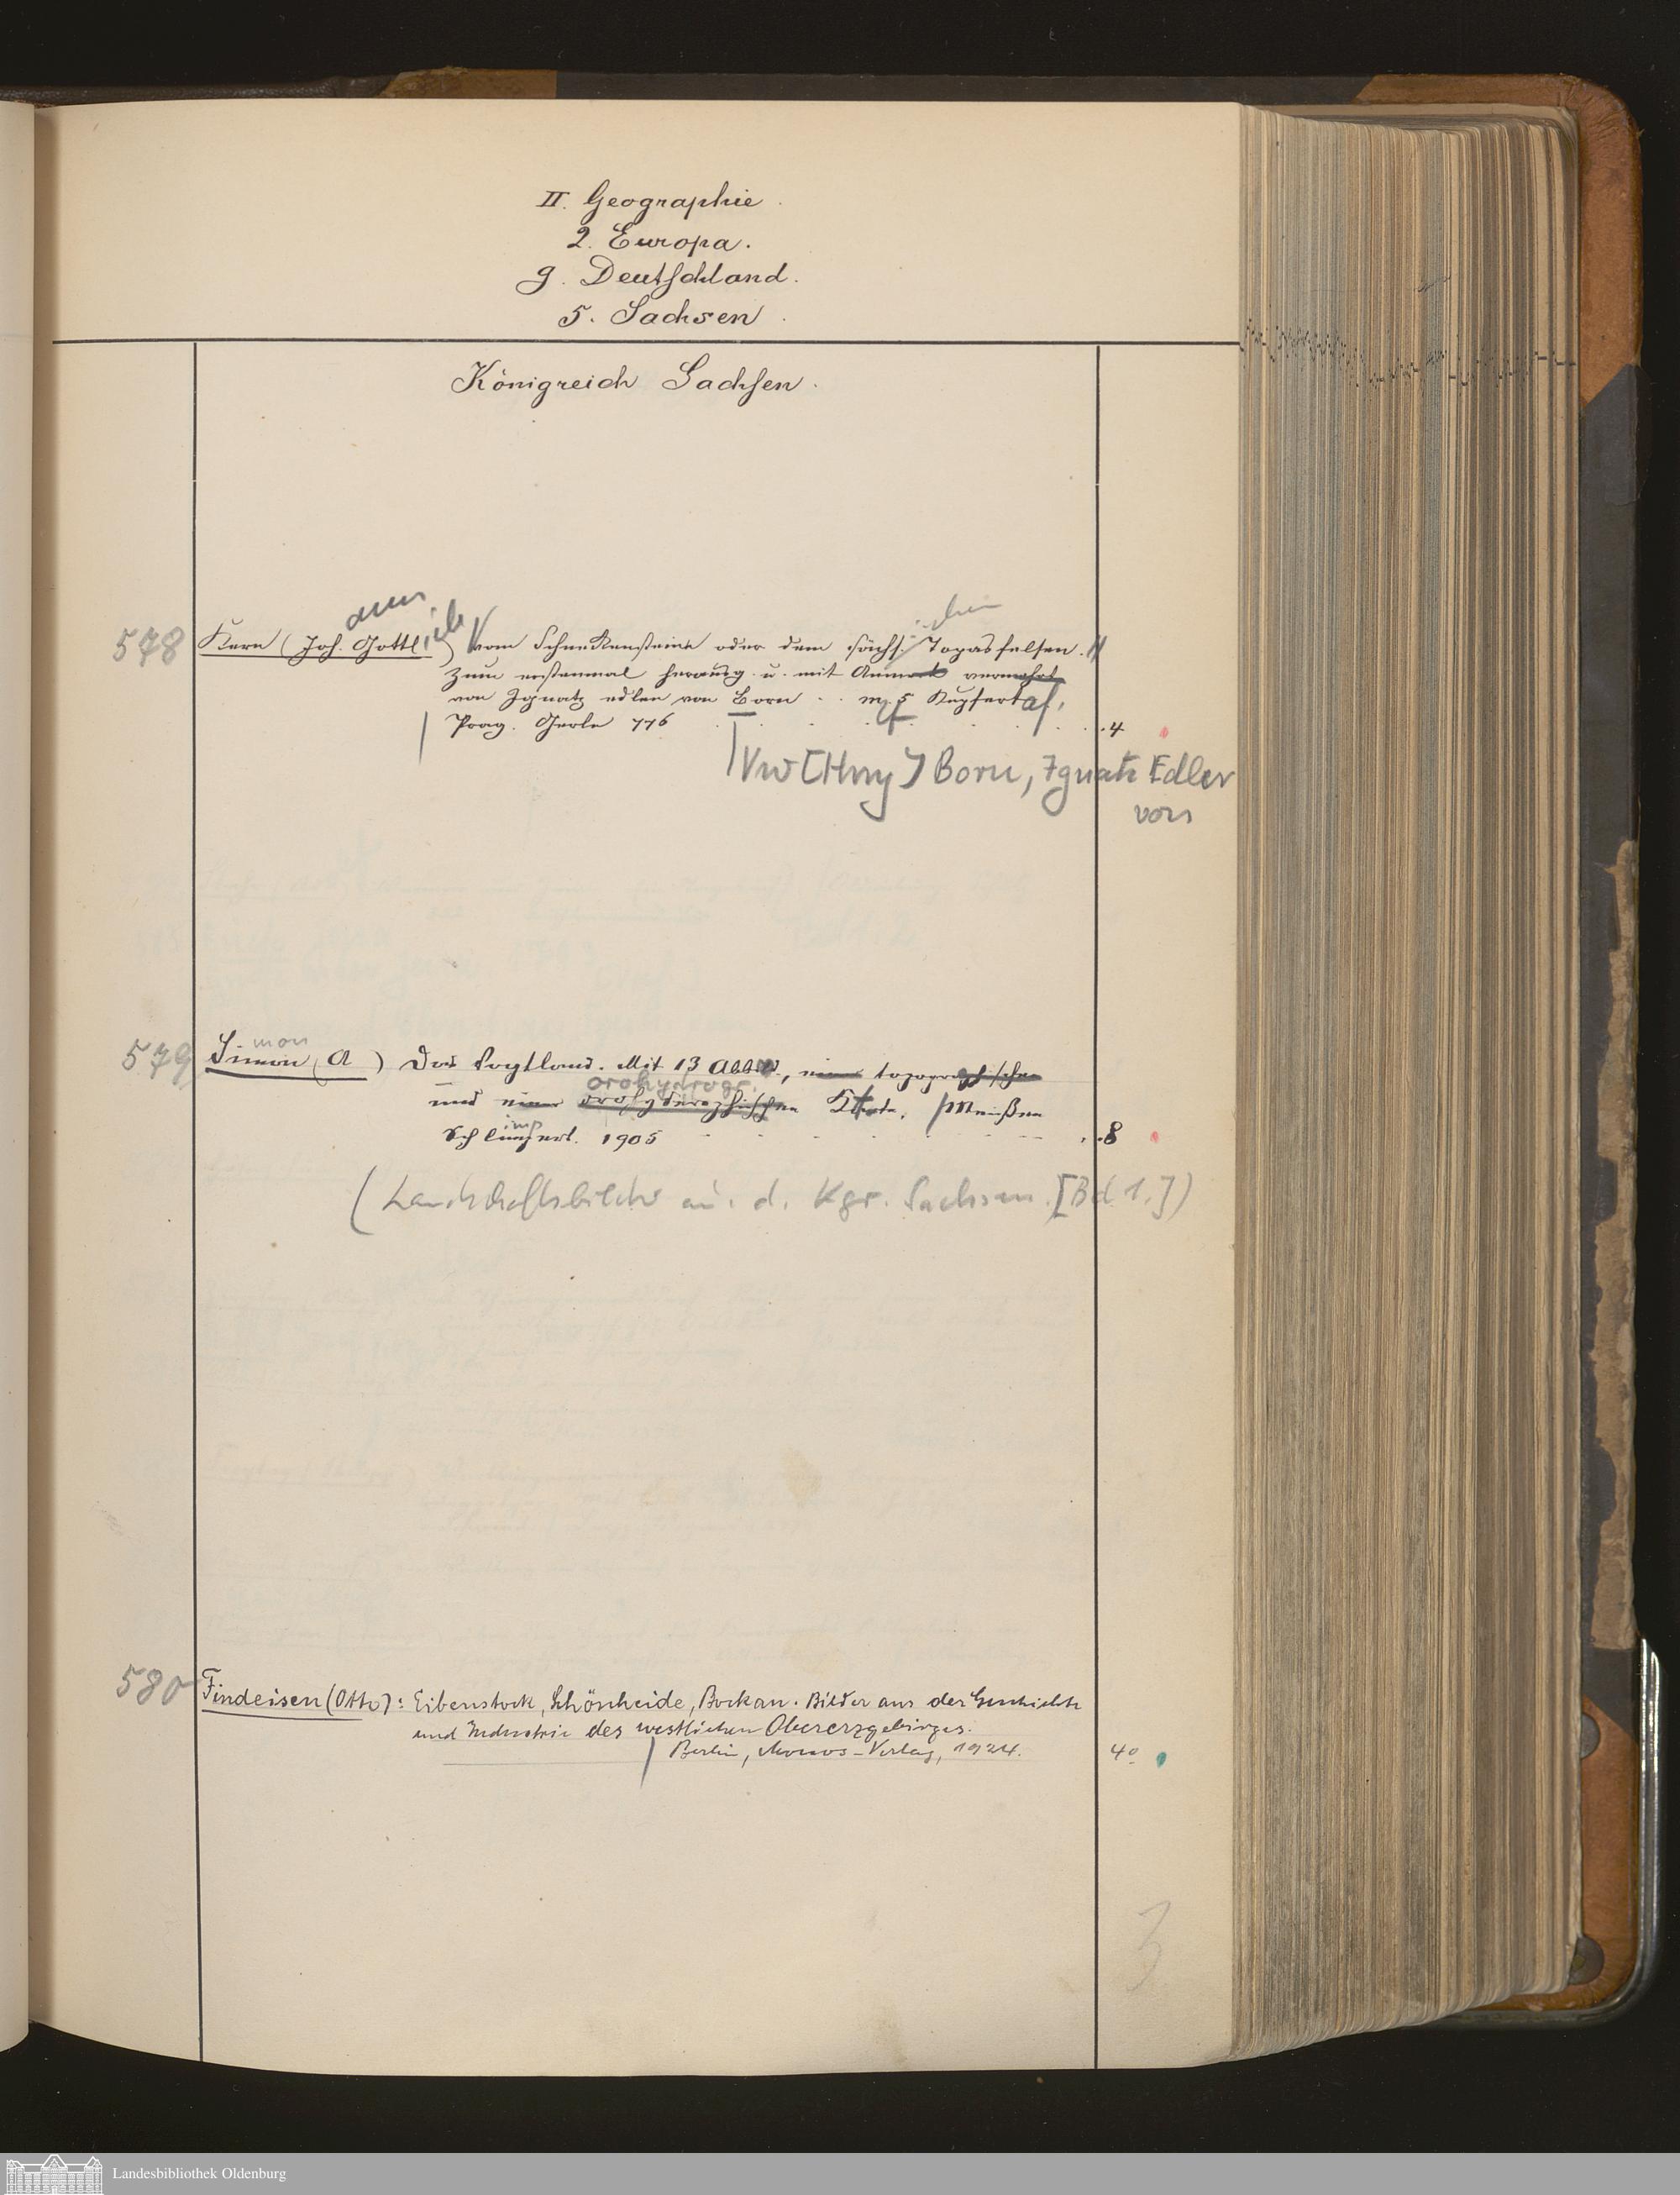 II. Geographie.
2. Europa.
g. Deutschland.
5. Sachsen.
Königreich Sachsen.
ann ischen
578 Kern (Joh. Gottlieb) Vom Schneckensteine oder dem sächs. Topasfelsen.
Zum erstenmal herausg. u. mit Anmerk vermehrt
von Ignatz edlen von Born . . m. 5 Kupfertaf.
Prag. Gerle 776 . . . . . . . 4
Vw [Hrsg] Born, Ignatz Edler
von
mon
579 Simon (A ) Das Vogtland. Mit 13 Abb., einer topographischen
orohydrogr.
und einer orohydrographischen Karte. Meißen
imp
Schlimpert. 1905 . . 8
(Landschaftsbilder au. d. Kgr. Sachsen. [Bd 1.])
580 Findeisen (Otto): Eibenstock, Schönheide, Bockau. Bilder aus der Geschichte
und Industrie des westlichen Obererzgebirges.
Berlin, Verlag, 1924. 4°
3
Landesbibliothek Oldenburg